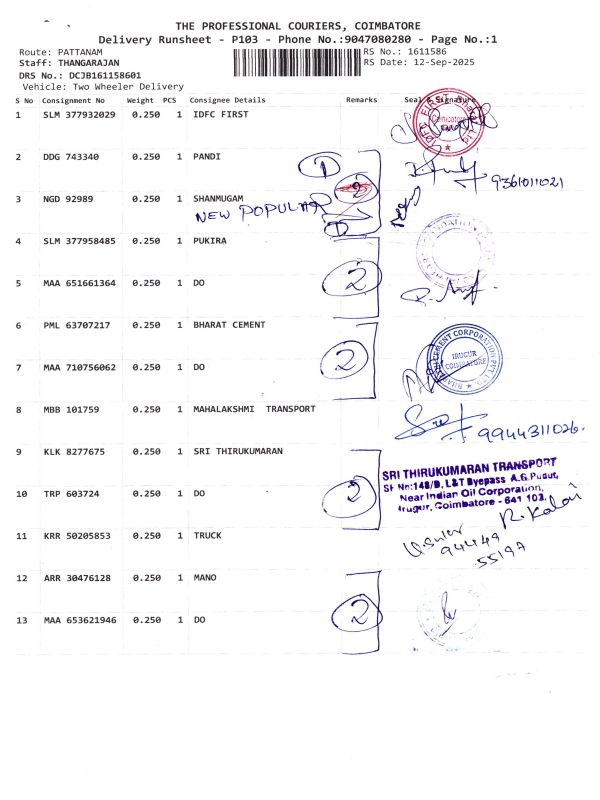 THE PROFESSIONAL COURIERS, COIMBATORE
Delivery Runsheet - P103 - Phone No.:9047080280 - Page No.:1
Route: PATTANAM RS No.: 1611586
Staff: THANGARAJAN RS Date: 12-Sep-2025
DRS No.: DCJB161158601
Vehicle: Two Wheeler Delivery
S No Consignment No Weight PCS Consignee Details Remarks Seal & Signature
1 SLM 377932029 0.250 1 IDFC FIRST
2 DDG 743340 0.250 1 PANDI 1
9361011021
3 NGD 92989 0.250 1 SHANMUGAM 2
NEW POPULAR 1
4 SLM 377958485 0.250 1 PUKIRA
5 MAA 651661364 0.250 1 DO 2
6 PML 63707217 0.250 1 BHARAT CEMENT
CEMENT CORPORATION PVT LTD
IRUGUR
COIMBATORE
7 MAA 710756062 0.250 1 DO 2
8 MBB 101759 0.250 1 MAHALAKSHMI TRANSPORT
9944311026.
9 KLK 8277675 0.250 1 SRI THIRUKUMARAN
SRI THIRUKUMARAN TRANSPORT
SF No:148/B, L&T Byepass A.G.Pudur,
Near Indian Oil Corporation,
Irugur, Coimbatore - 641 103.
10 TRP 603724 0.250 1 DO 2
R. Kalai
11 KRR 50205853 0.250 1 TRUCK
94449
55197
12 ARR 30476128 0.250 1 MANO
13 MAA 653621946 0.250 1 DO 2